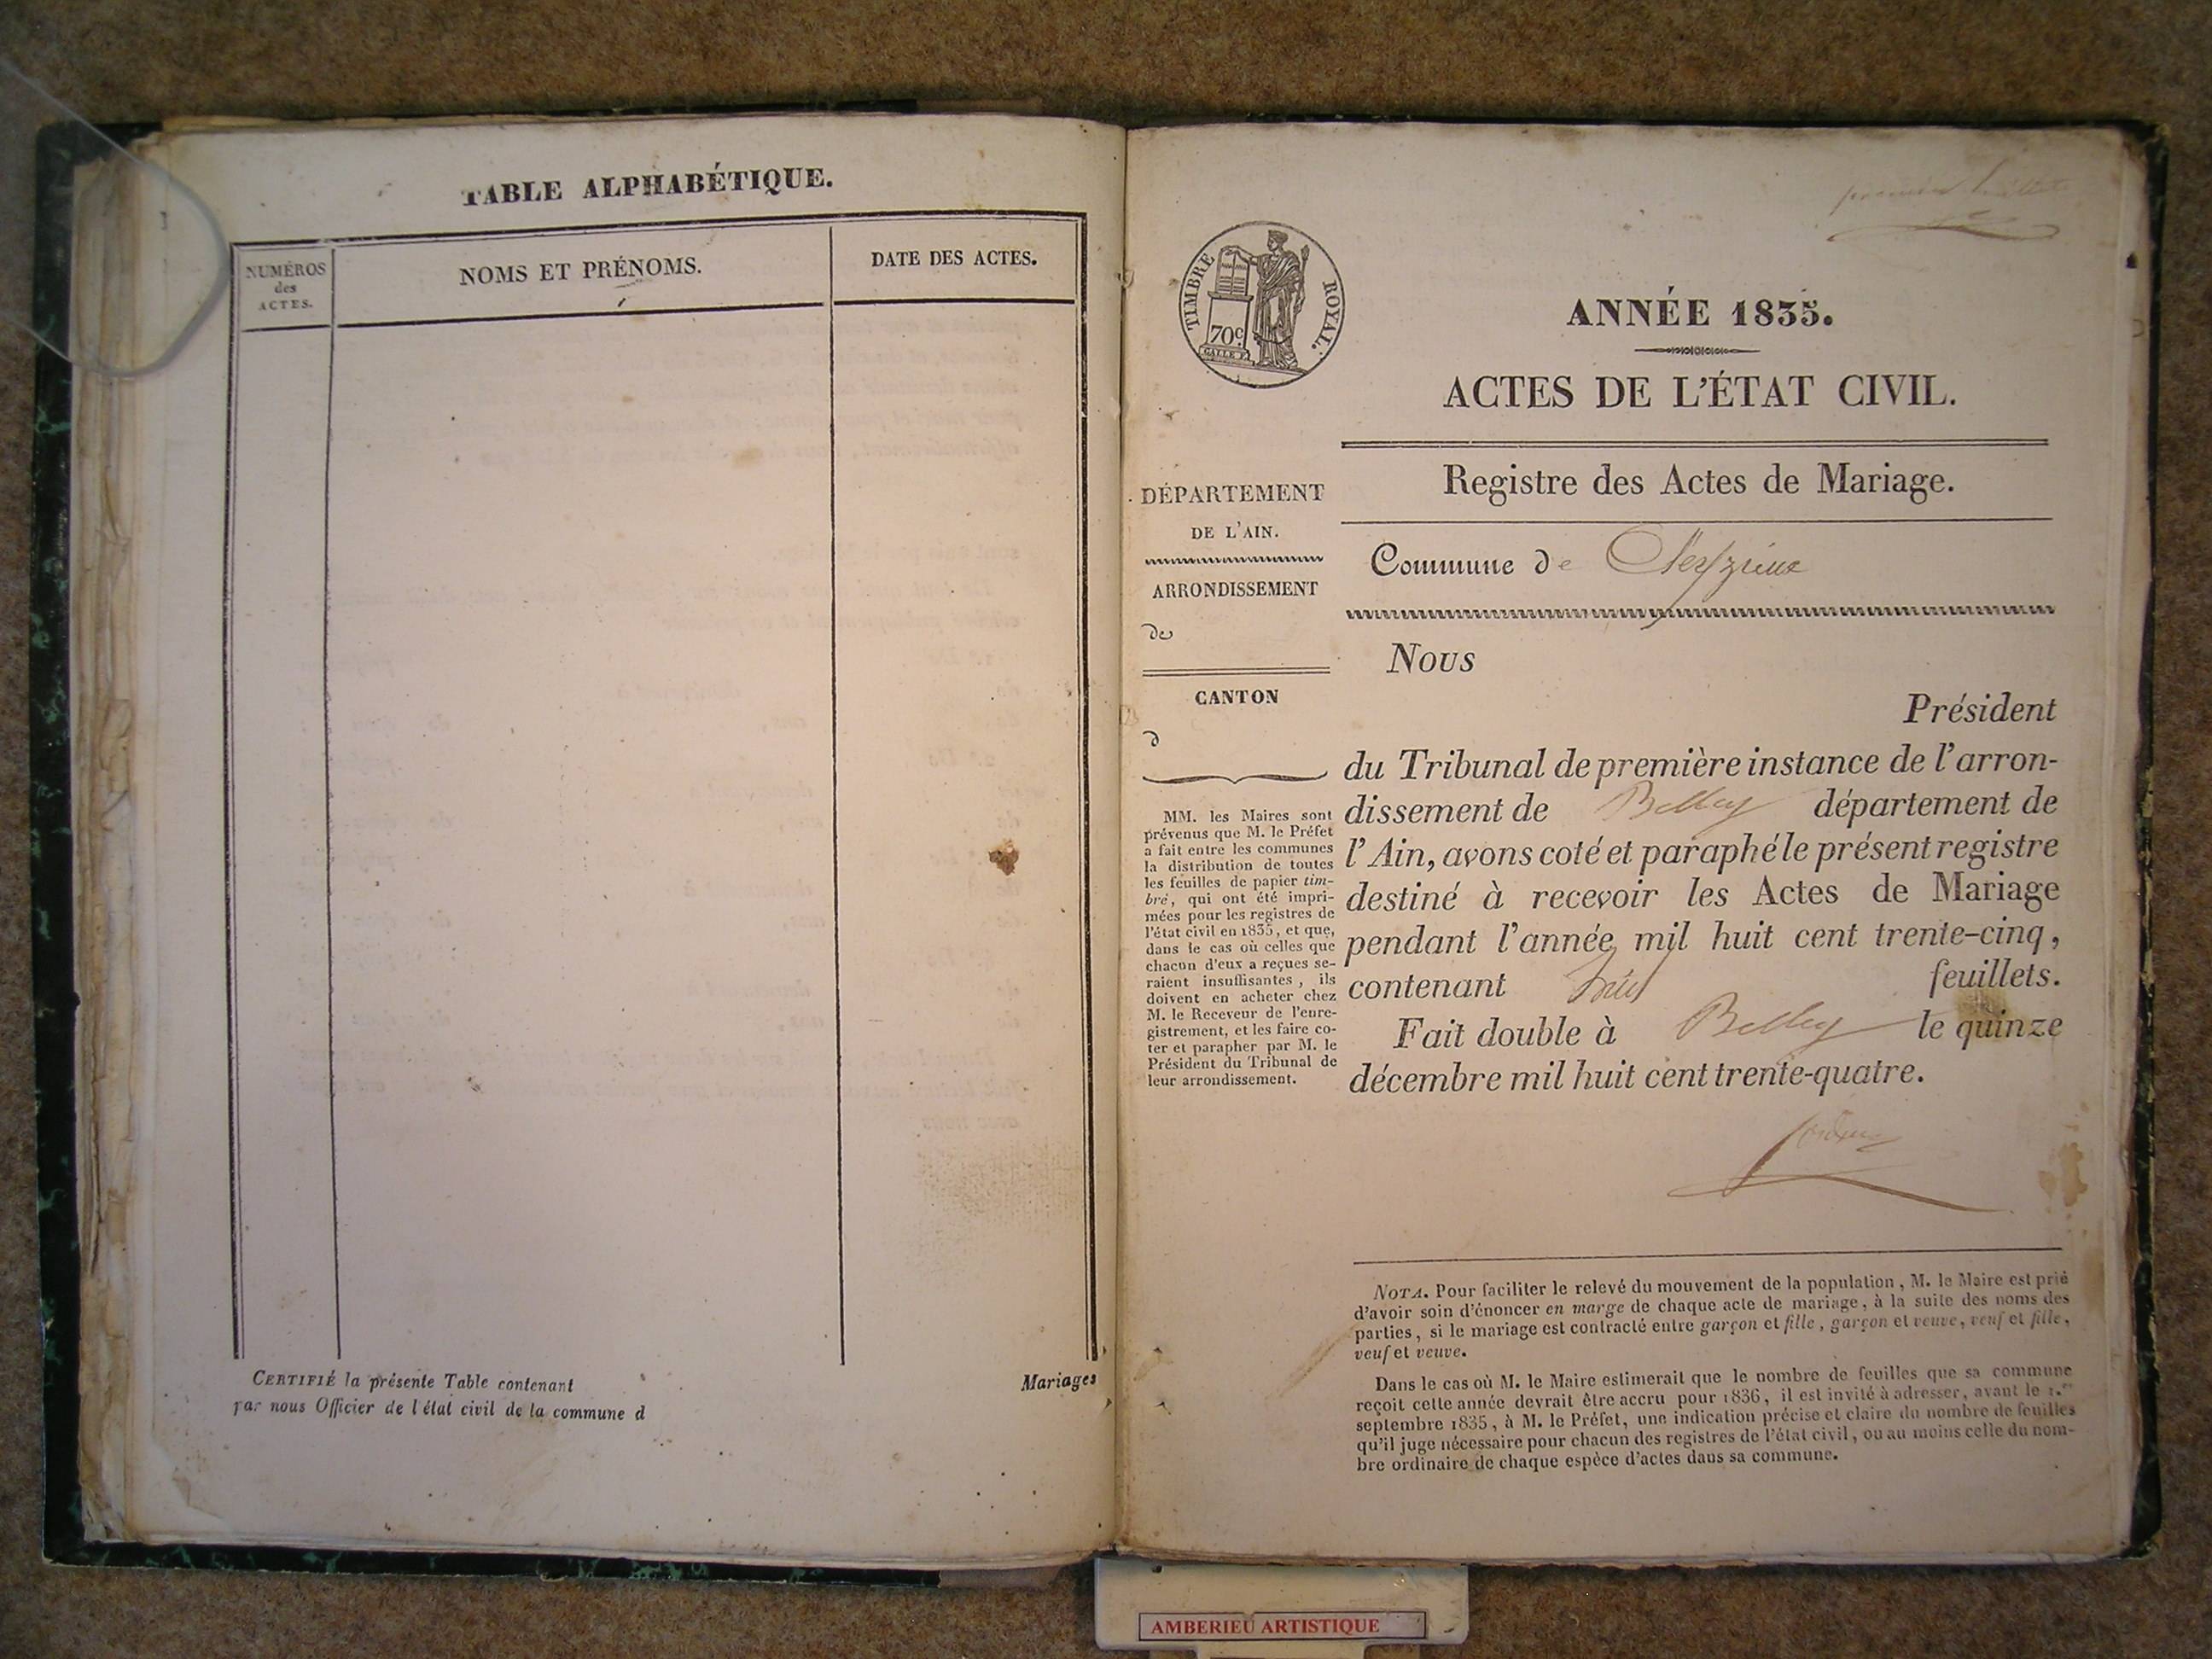 TABLE ALPHABÉTIQUE.
NUMÉROS
des
ACTES.
NOMS ET PRÉNOMS.
DATE DES ACTES.
CERTIFIÉ la présente Table contenant
par nous Officier de l'état civil de la commune d
Mariages
premier feuillet
TIMBRE ROYAL.
70c.
ANNÉE 1835.
ACTES DE L'ÉTAT CIVIL.
Registre des Actes de Mariage.
Commune de
DÉPARTEMENT
DE L'AIN.
ARRONDISSEMENT
de
CANTON
d
MM. les Maires sont
prévenus que M. le Préfet
a fait entre les communes
la distribution de toutes
les feuilles de papier tim-
bré, qui ont été impri-
mées pour les registres de
l'état civil en 1835, et que,
dans le cas où celles que
chacun d'eux a reçues se-
raient insuffisantes, ils
doivent en acheter chez
M. le Receveur de l'enre-
gistrement, et les faire co-
ter et parapher par M. le
Président du Tribunal de
leur arrondissement.
Nous
Président
du Tribunal de première instance de l'arron-
dissement de Belley département de
l'Ain, avons coté et paraphé le présent registre
destiné à recevoir les Actes de Mariage
pendant l'année mil huit cent trente-cinq,
contenant feuillets.
Fait double à Belley le quinze
décembre mil huit cent trente-quatre.
NOTA. Pour faciliter le relevé du mouvement de la population, M. le Maire est prié
d'avoir soin d'énoncer en marge de chaque acte de mariage, à la suite des noms des
parties, si le mariage est contracté entre garçon et fille, garçon et veuve, veuf et fille,
veuf et veuve.
Dans le cas où M. le Maire estimerait que le nombre de feuilles que sa commune
reçoit cette année devrait être accru pour 1836, il est invité à adresser, avant le 1.er
septembre 1835, à M. le Préfet, une indication précise et claire du nombre de feuilles
qu'il juge nécessaire pour chacun des registres de l'état civil, ou au moins celle du nom-
bre ordinaire de chaque espèce d'actes dans sa commune.
AMBERIEU ARTISTIQUE